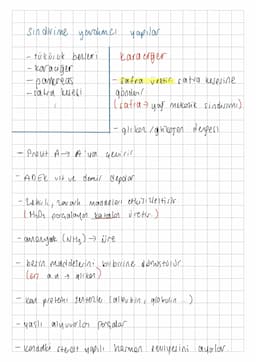 Sindirime yardımcı yapılar
- tükürük bezleri
- karaciğer
- pankreas
- safra kesesi
karaciğer
- safra üretir safra kesesine
gönderir
(safra → yağ mekanik sindirimi)
- glikoz/glikojen dengesi
- Provit A → A'ya çevirir
- ADEK vit ve demir depolar
- Zehirli, zararlı maddeleri etkisizleştirir
(H₂O₂ parçalayan katalaz üretir)
- amonyak (NH₃) → üre
- besin maddelerini birbirine dönüştürür
(a.a → glikoz)
- kan proteini sentezler (albümin, globulin ...)
- yaşlı alyuvarları parçalar
- kandaki steroit yapılı hormon seviyesini ayarlar